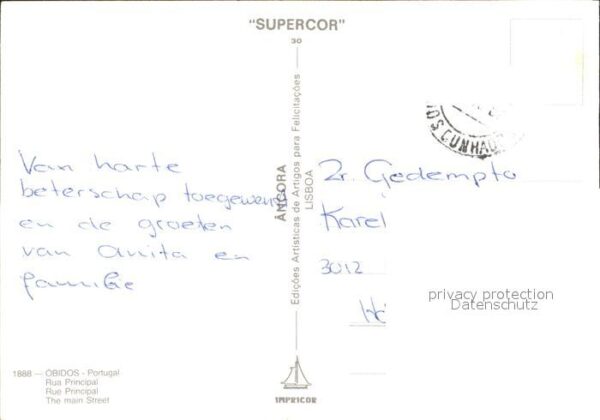 "SUPERCOR"
30
Van harte
beterschap toegewenst
en de groeten
van Anita en
familie
ÂNCORA
Edições Artísticas de Artigos para Felicitações
LISBOA
Zr. Gedempta
Karel
3012
privacy protection
Datenschutz
1888 — ÓBIDOS - Portugal
Rua Principal
Rue Principal
The main Street
IMPRICOR